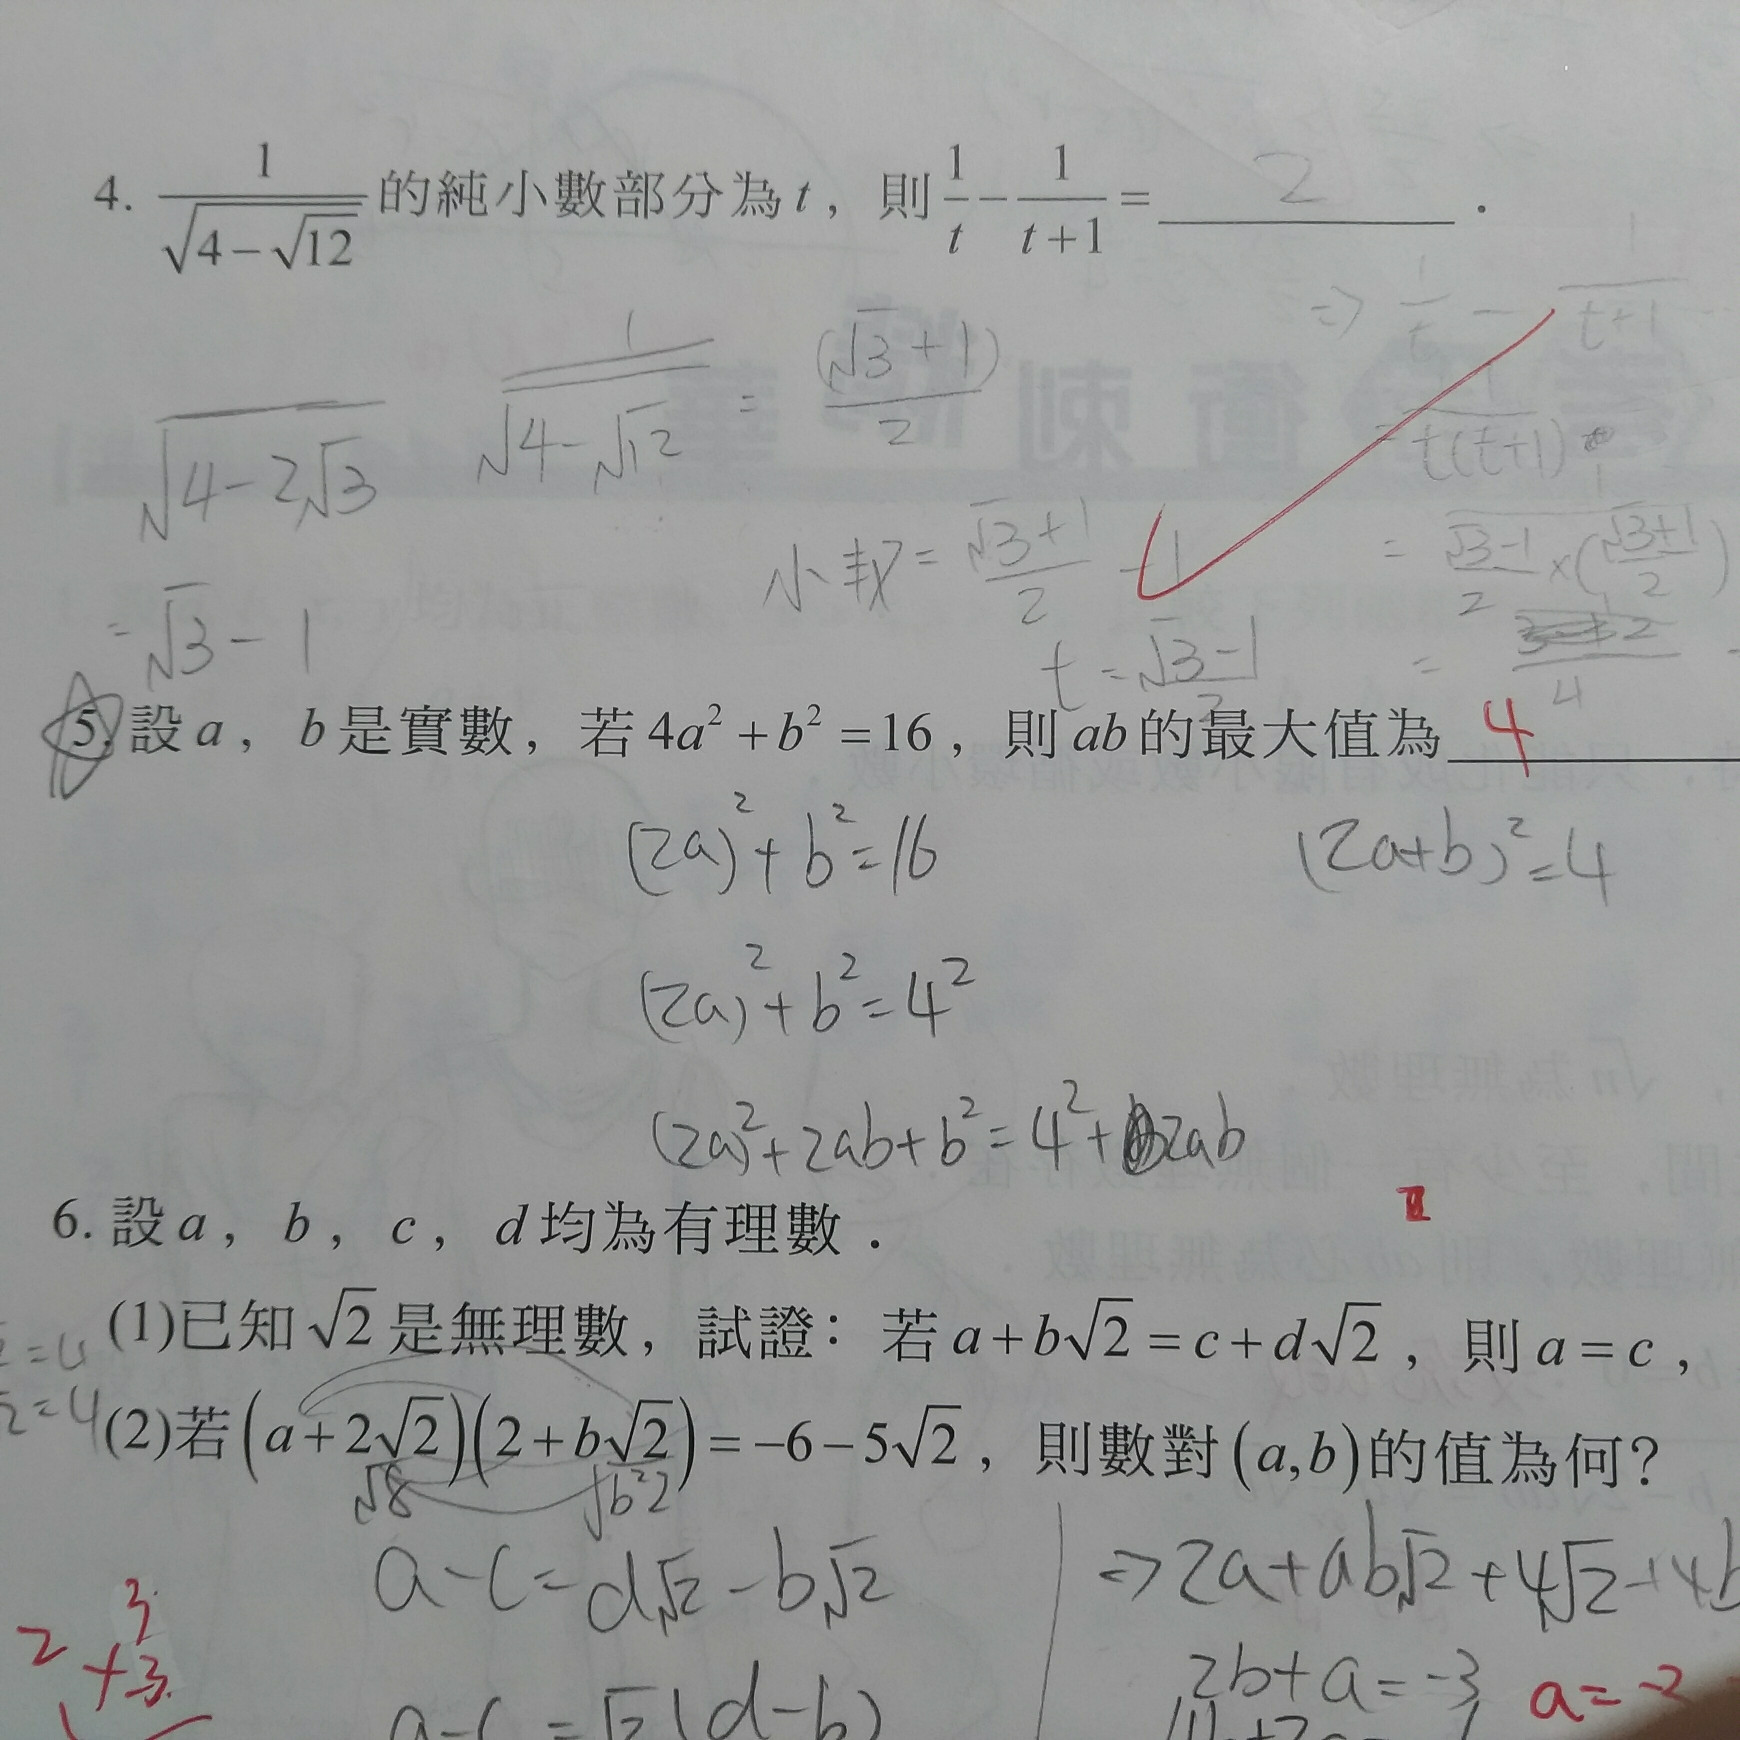 4. 1/√(4-√12) 的純小數部分為 t，則 1/t - 1/(t+1) = 2 ．
√(4-2√3)
1/√(4-√12) = (√3+1)/2
⇒ 1/t - 1/(t+1)
= 1/(t(t+1))
小数 = (√3+1)/2 - 1
= 1/((√3-1)/2 × (√3+1)/2)
= √3 - 1
t = (√3-1)/2
5. 設 a，b 是實數，若 4a² + b² = 16，則 ab 的最大值為 4
(2a)² + b² = 16
(2a+b)² = 4
(2a)² + b² = 4²
(2a)² + 2ab + b² = 4² + 2ab
6. 設 a，b，c，d 均為有理數．
(1)已知 √2 是無理數，試證：若 a + b√2 = c + d√2，則 a = c，
(2)若 (a + 2√2)(2 + b√2) = -6 - 5√2，則數對 (a,b) 的值為何？
√8
√b²2
a - c = d√2 - b√2
⇒ 2a + ab√2 + 4√2 + 4b
2b + a = -3
a - c = √2(d-b)